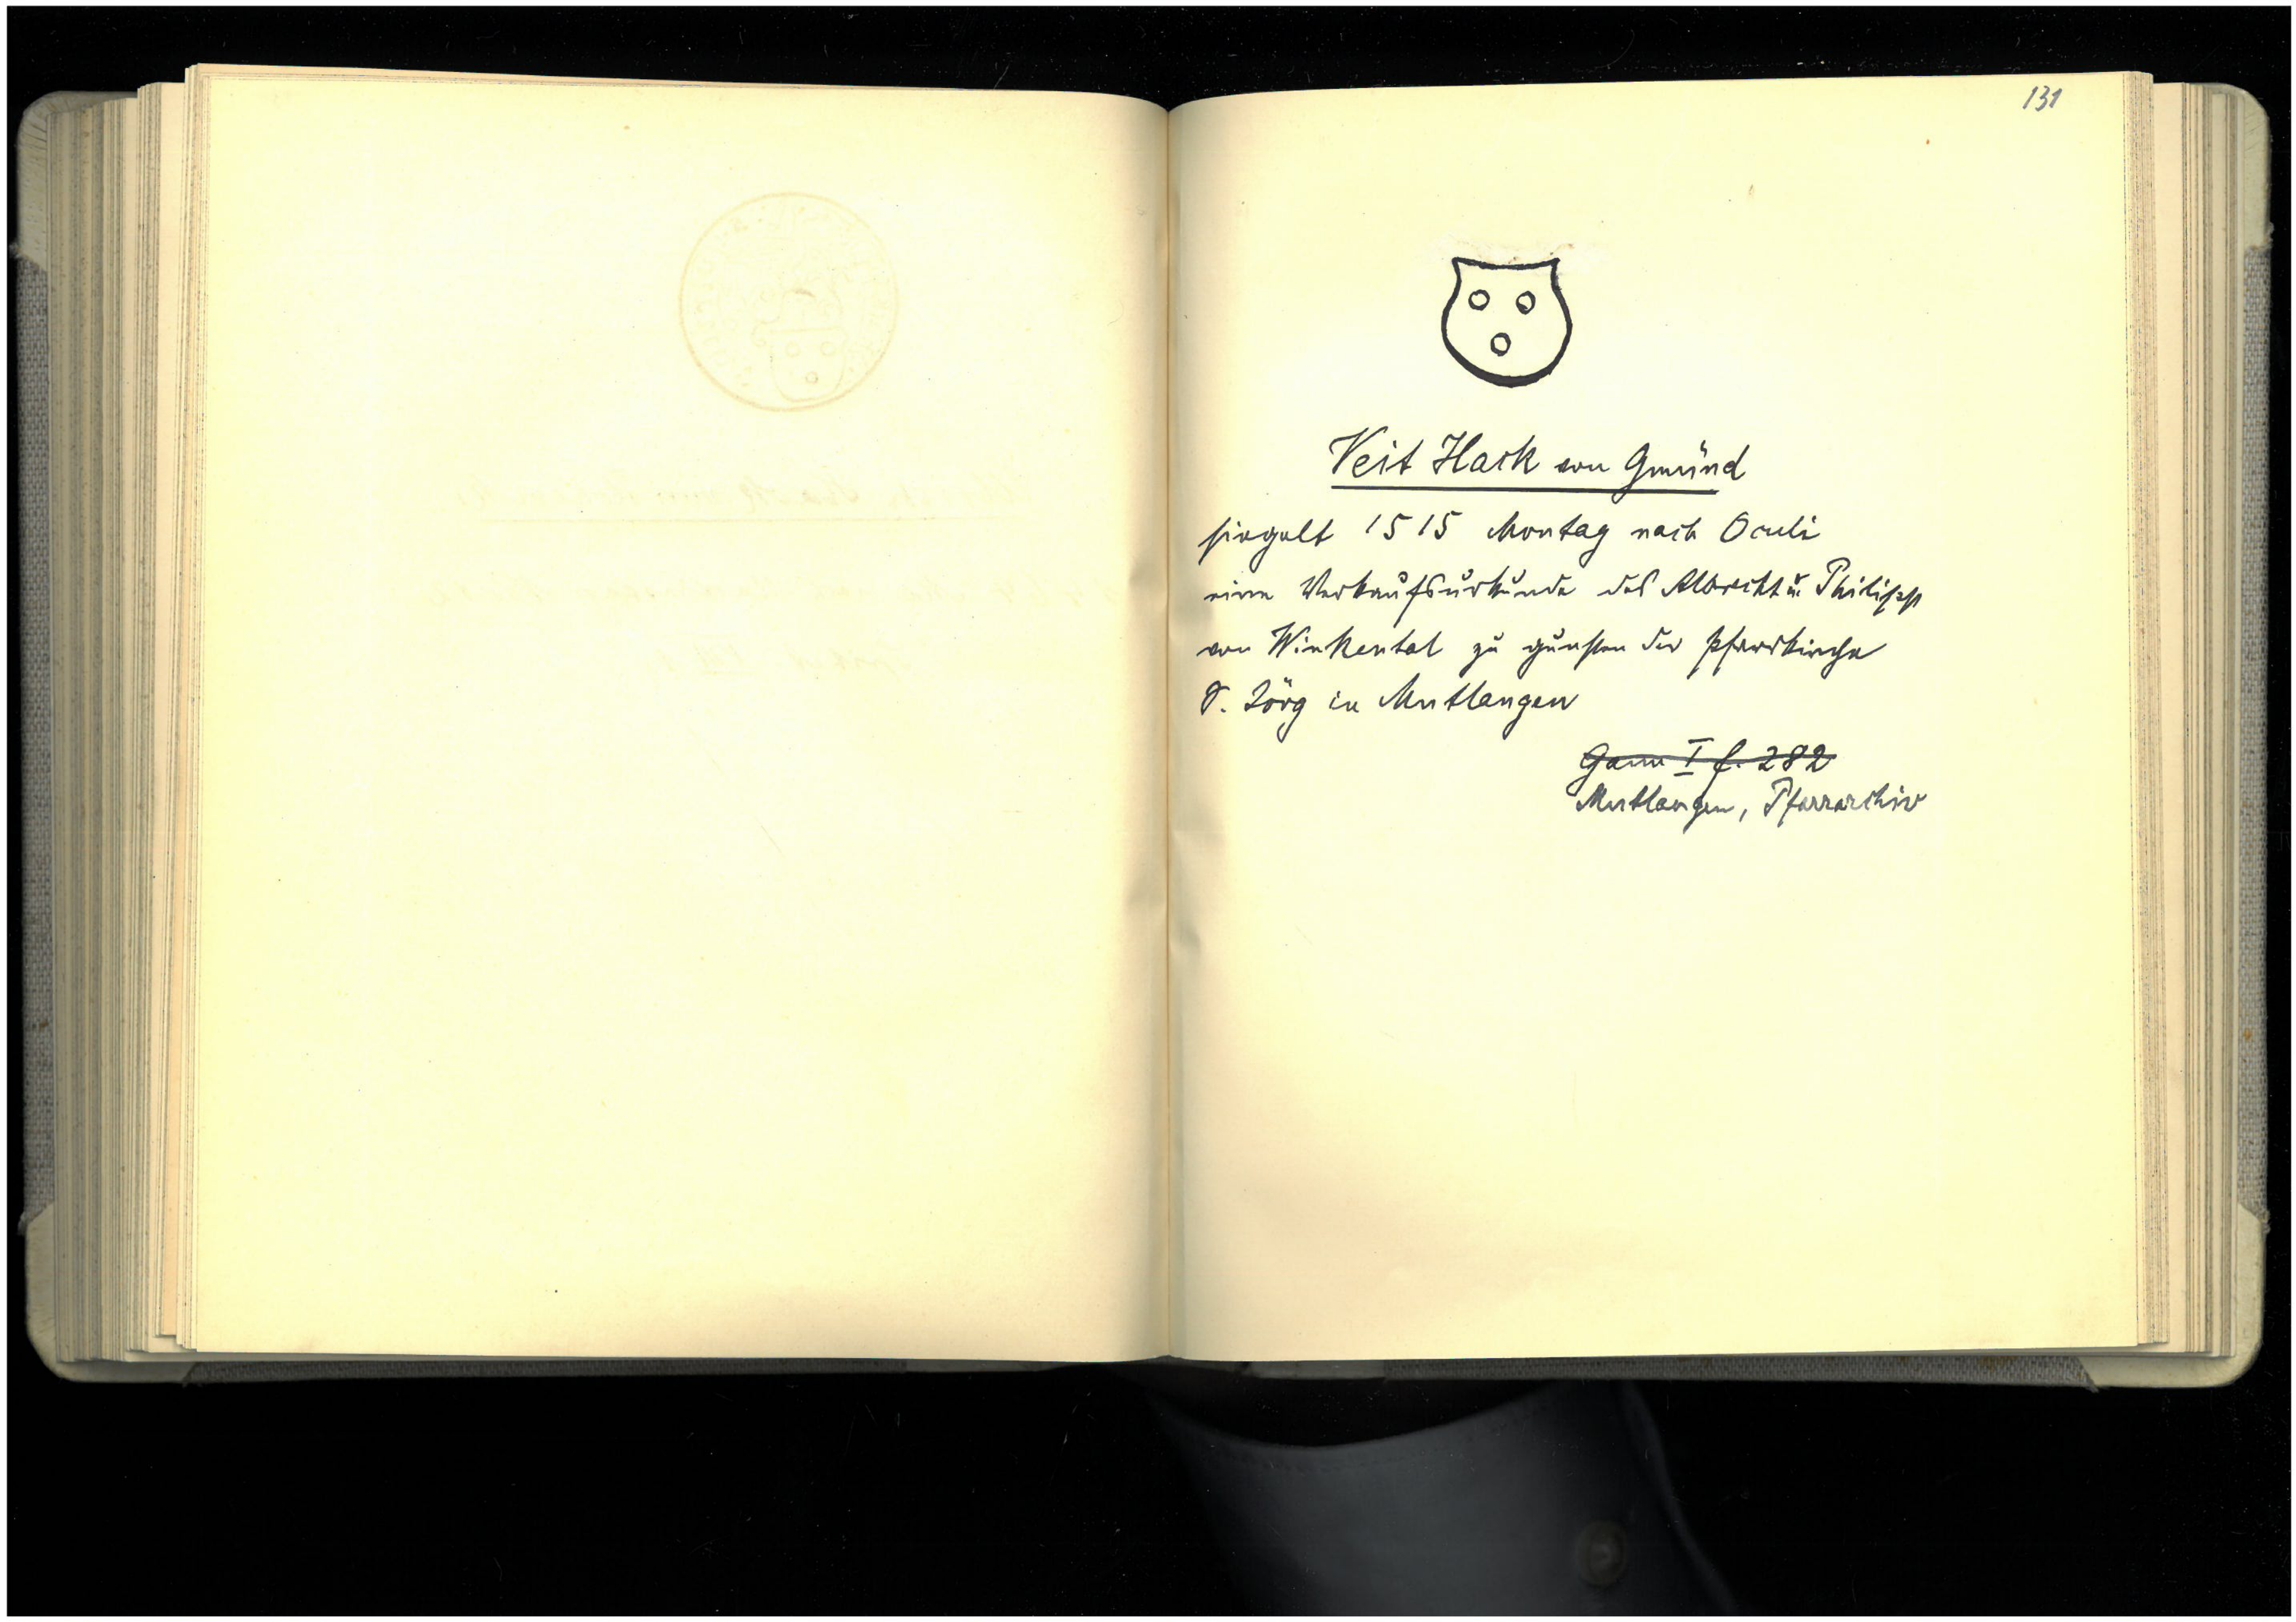 131
Veit Hack von Gmünd
siegelt 1515 Montag nach Oculi
eine Verkaufsurkunde des Albrecht u. Philipp
von Winkental zu gunsten der Pfarrkirche
S. Jörg in Mutlangen
Gmünd I f. 282
Mutlangen, Pfarrarchiv